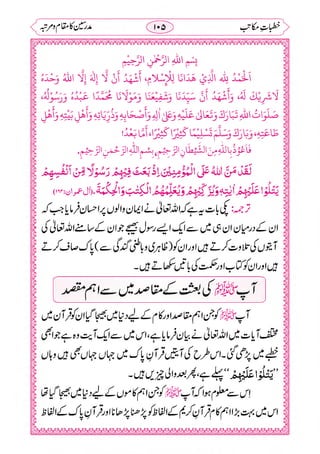 خطباتِ مکاتب ۱۰۵ مدرسین کا مقام و مرتبہ
بِسْمِ اللهِ الرَّحْمٰنِ الرَّحِيْمِ
اَلْحَمْدُ لِلهِ الَّذِيْ هَدَانَا لِلْاِسْلَامِ، اَشْهَدُ اَنْ لَّا اِلٰهَ اِلَّا اللهُ وَحْدَهُ
لَا شَرِيْكَ لَهُ، وَ اَشْهَدُ اَنَّ سَيِّدَنَا وَ شَفِيْعَنَا وَ مَوْلَانَا مُحَمَّدًا عَبْدُهُ وَ رَسُوْلُهُ،
صَلَوَاتُ اللهِ تَبَارَكَ وَ تَعَالٰى عَلَيْهِ وَ عَلٰى اٰلِهٖ وَ اَصْحَابِهٖ وَ ذُرِّيَّاتِهٖ وَ اَهْلِ بَيْتِهٖ وَ اَهْلِ
طَاعَتِهٖ، وَ بَارَكَ وَ سَلَّمَ تَسْلِيْمًا كَثِيْرًا كَثِيْرًا، اَمَّا بَعْدُ!
فَاَعُوْذُ بِاللهِ مِنَ الشَّيْطَانِ الرَّجِيْمِ، بِسْمِ اللهِ الرَّحْمٰنِ الرَّحِيْمِ.
لَقَدْ مَنَّ اللهُ عَلَى الْمُؤْمِنِيْنَ اِذْ بَعَثَ فِيْهِمْ رَسُوْلًا مِّنْ اَنْفُسِهِمْ
يَتْلُوْا عَلَيْهِمْ اٰيٰتِهٖ وَ يُزَكِّيْهِمْ وَ يُعَلِّمُهُمُ الْكِتٰبَ وَ الْحِكْمَةَ. (آل عمران: ۱۶۴)
ترجمہ: پکی بات یہ ہے کہ اللہ تعالیٰ نے ایمان والوں پر احسان فرمایا جب کہ
ان کے درمیان ان ہی میں سے ایک ایسے رسول بھیجے جو ان کے سامنے اللہ تعالیٰ کی
آیتوں کی تلاوت کرتے ہیں اور ان کو (ظاہری و باطنی گندگی سے) پاک صاف کرتے
ہیں اور ان کو کتاب اور حکمت کی باتیں سکھاتے ہیں۔
آپ ﷺ کی بعثت کے مقاصد میں سے اہم مقصد
آپ ﷺ کو جن اہم مقصد اور کام کے لیے دنیا میں بھیجا گیا ان کو قرآن میں
مختلف آیات میں اللہ تعالیٰ نے بیان فرمایا ہے، اس میں سے ایک آیت وہ ہے جو ابھی
خطبے میں پڑھی گئی۔ اس طرح کی آیتیں قرآنِ پاک میں جہاں جہاں بھی ہیں وہاں
’’یَتْلُوْا عَلَیْهِمْ اٰیٰتِهٖ‘‘ پہلے ہے، پھر بعد والی چیزیں ہیں۔
اِس سے معلوم ہوا کہ آپ ﷺ کو جن اہم کاموں کے لیے دنیا میں بھیجا گیا تھا
اس میں بہت بڑا اہم کام قرآنِ کریم کے الفاظ کو پڑھنا پڑھانا اور قرآن پاک کے الفاظ